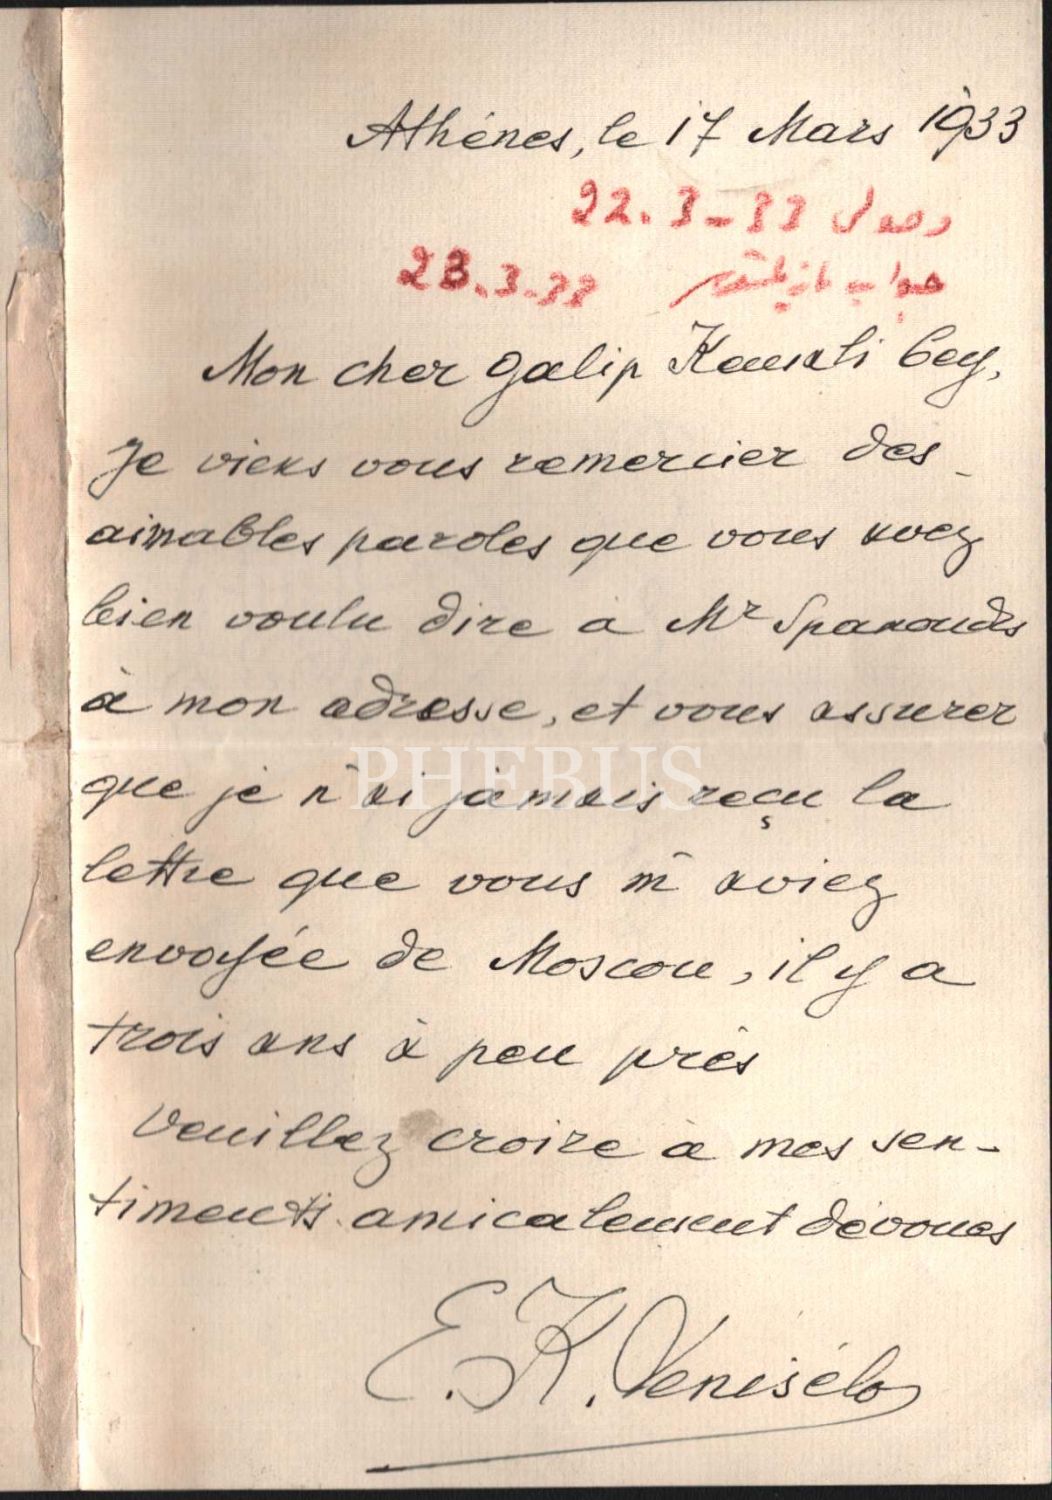 Athénes, le 17 Mars 1933
وصول 22.3-33
جواب يازيلمشدر 23.3.33
Mon cher Galip Kemali bey,
Je viens vous remercier des
aimables paroles que vous avez
bien voulu dire a Mr Spanoudis
à mon adresse, et vous assurer
que je n'ai jamais reçu la
PHEBUS
lettre que vous m'aviez
envoyée de Moscou, il y a
trois ans à peu près
Veuillez croire a mes sen-
timents amicalement dévoués
E. K. Venisélos